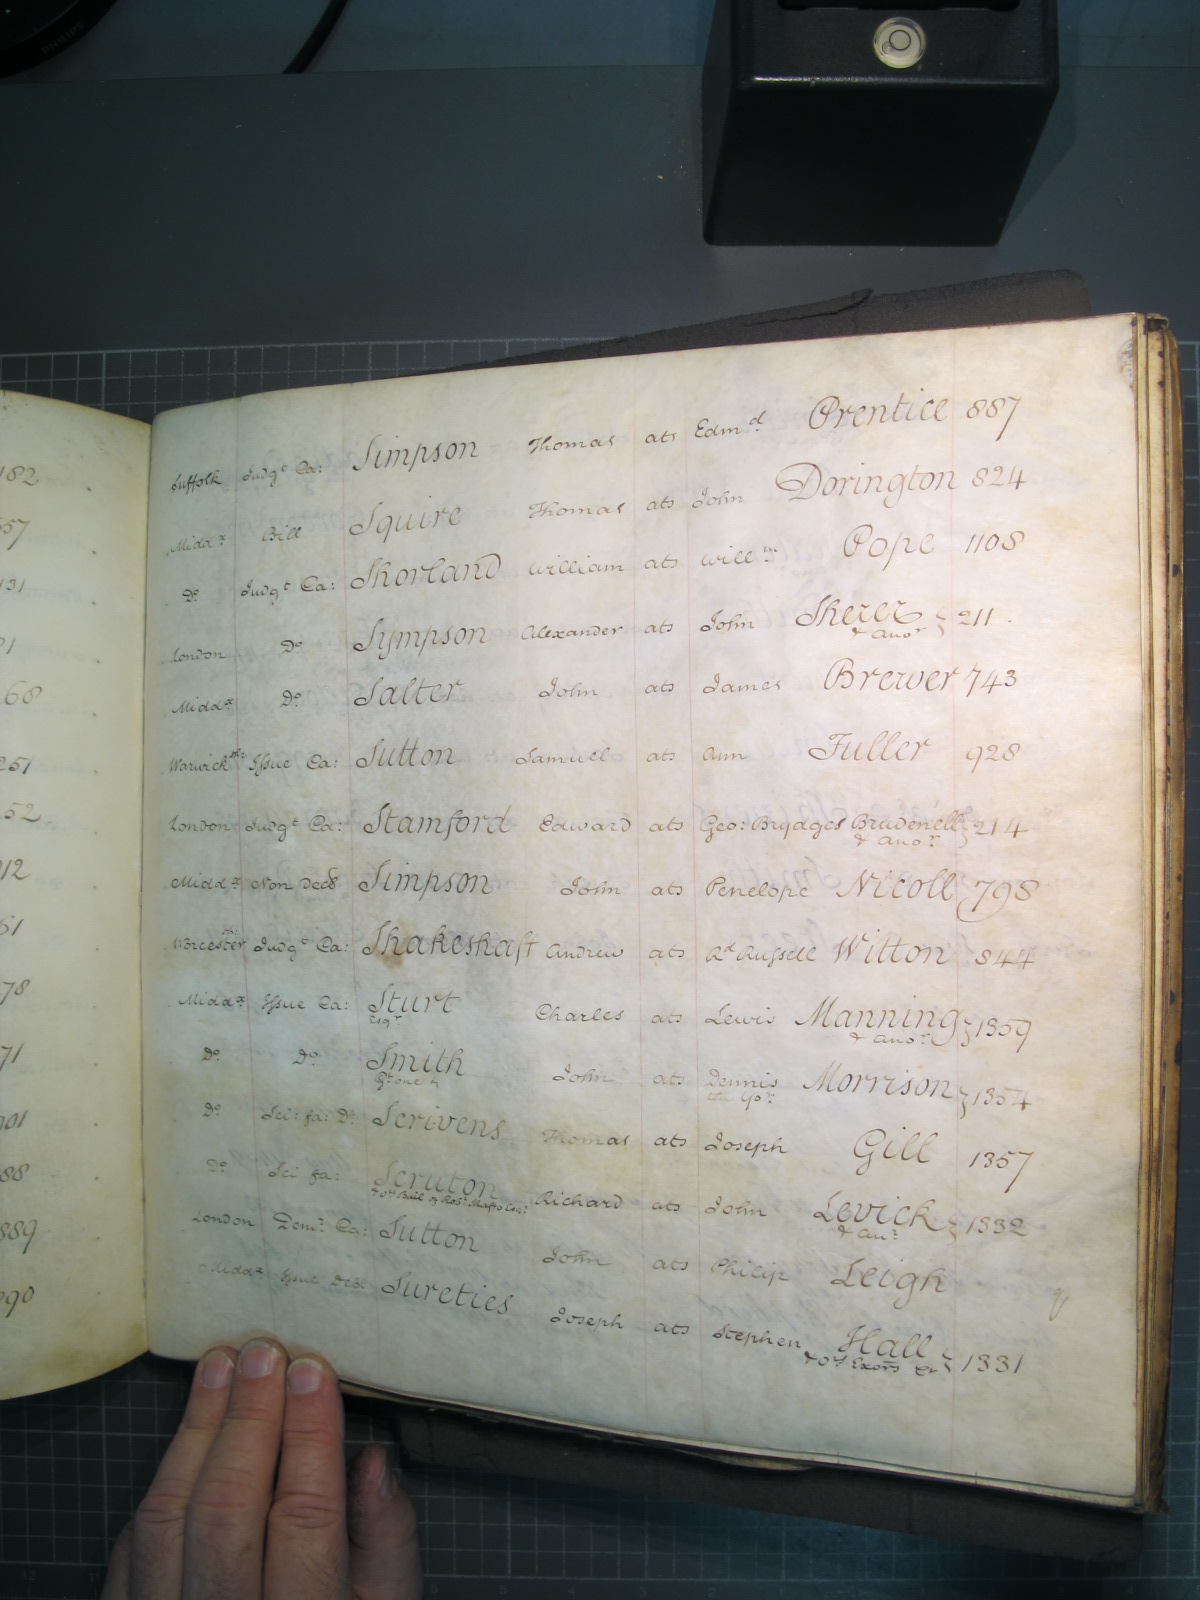 PHILIPS
182
57
131
91
68
251
52
912
61
78
71
901
88
889
090
Suffolk Judgt Ca: Simpson Thomas ats Edmd Prentice 887
Middx Bill Squire Thomas ats John Dorington 824
Do Judgt Ca: Shorland William ats Willm Pope 1108
London Do Sympson Alexander ats John Sherer & anor } 211
Middx Do Salter John ats James Brewer 743
Warwick Issue Ca: Sutton Samuel ats Ann Fuller 928
London Judgt Ca: Stamford Edward ats Geo: Brydges Brudenell & anor } 214
Middx Non Decs Simpson John ats Penelope Nicoll 798
Worcester Judgt Ca: Shakeshaft Andrew ats Rd Russell Witton 844
Middx Issue Ca: Sturt Esqr Charles ats Lewis Manning & anor } 1359
Do Do Smith Gt one &c John ats Dennis the yor Morrison } 1354
Do Sci: fa: Do Scrivens Thomas ats Joseph Gill 1357
Do Sci fa: Scruton Richard ats John Levick & anr } 1332
London Demr Ca: Sutton John ats Philip Leigh
Middx Issue Debt Sureties Joseph ats Stephen Hall & ors Exors &c } 1331